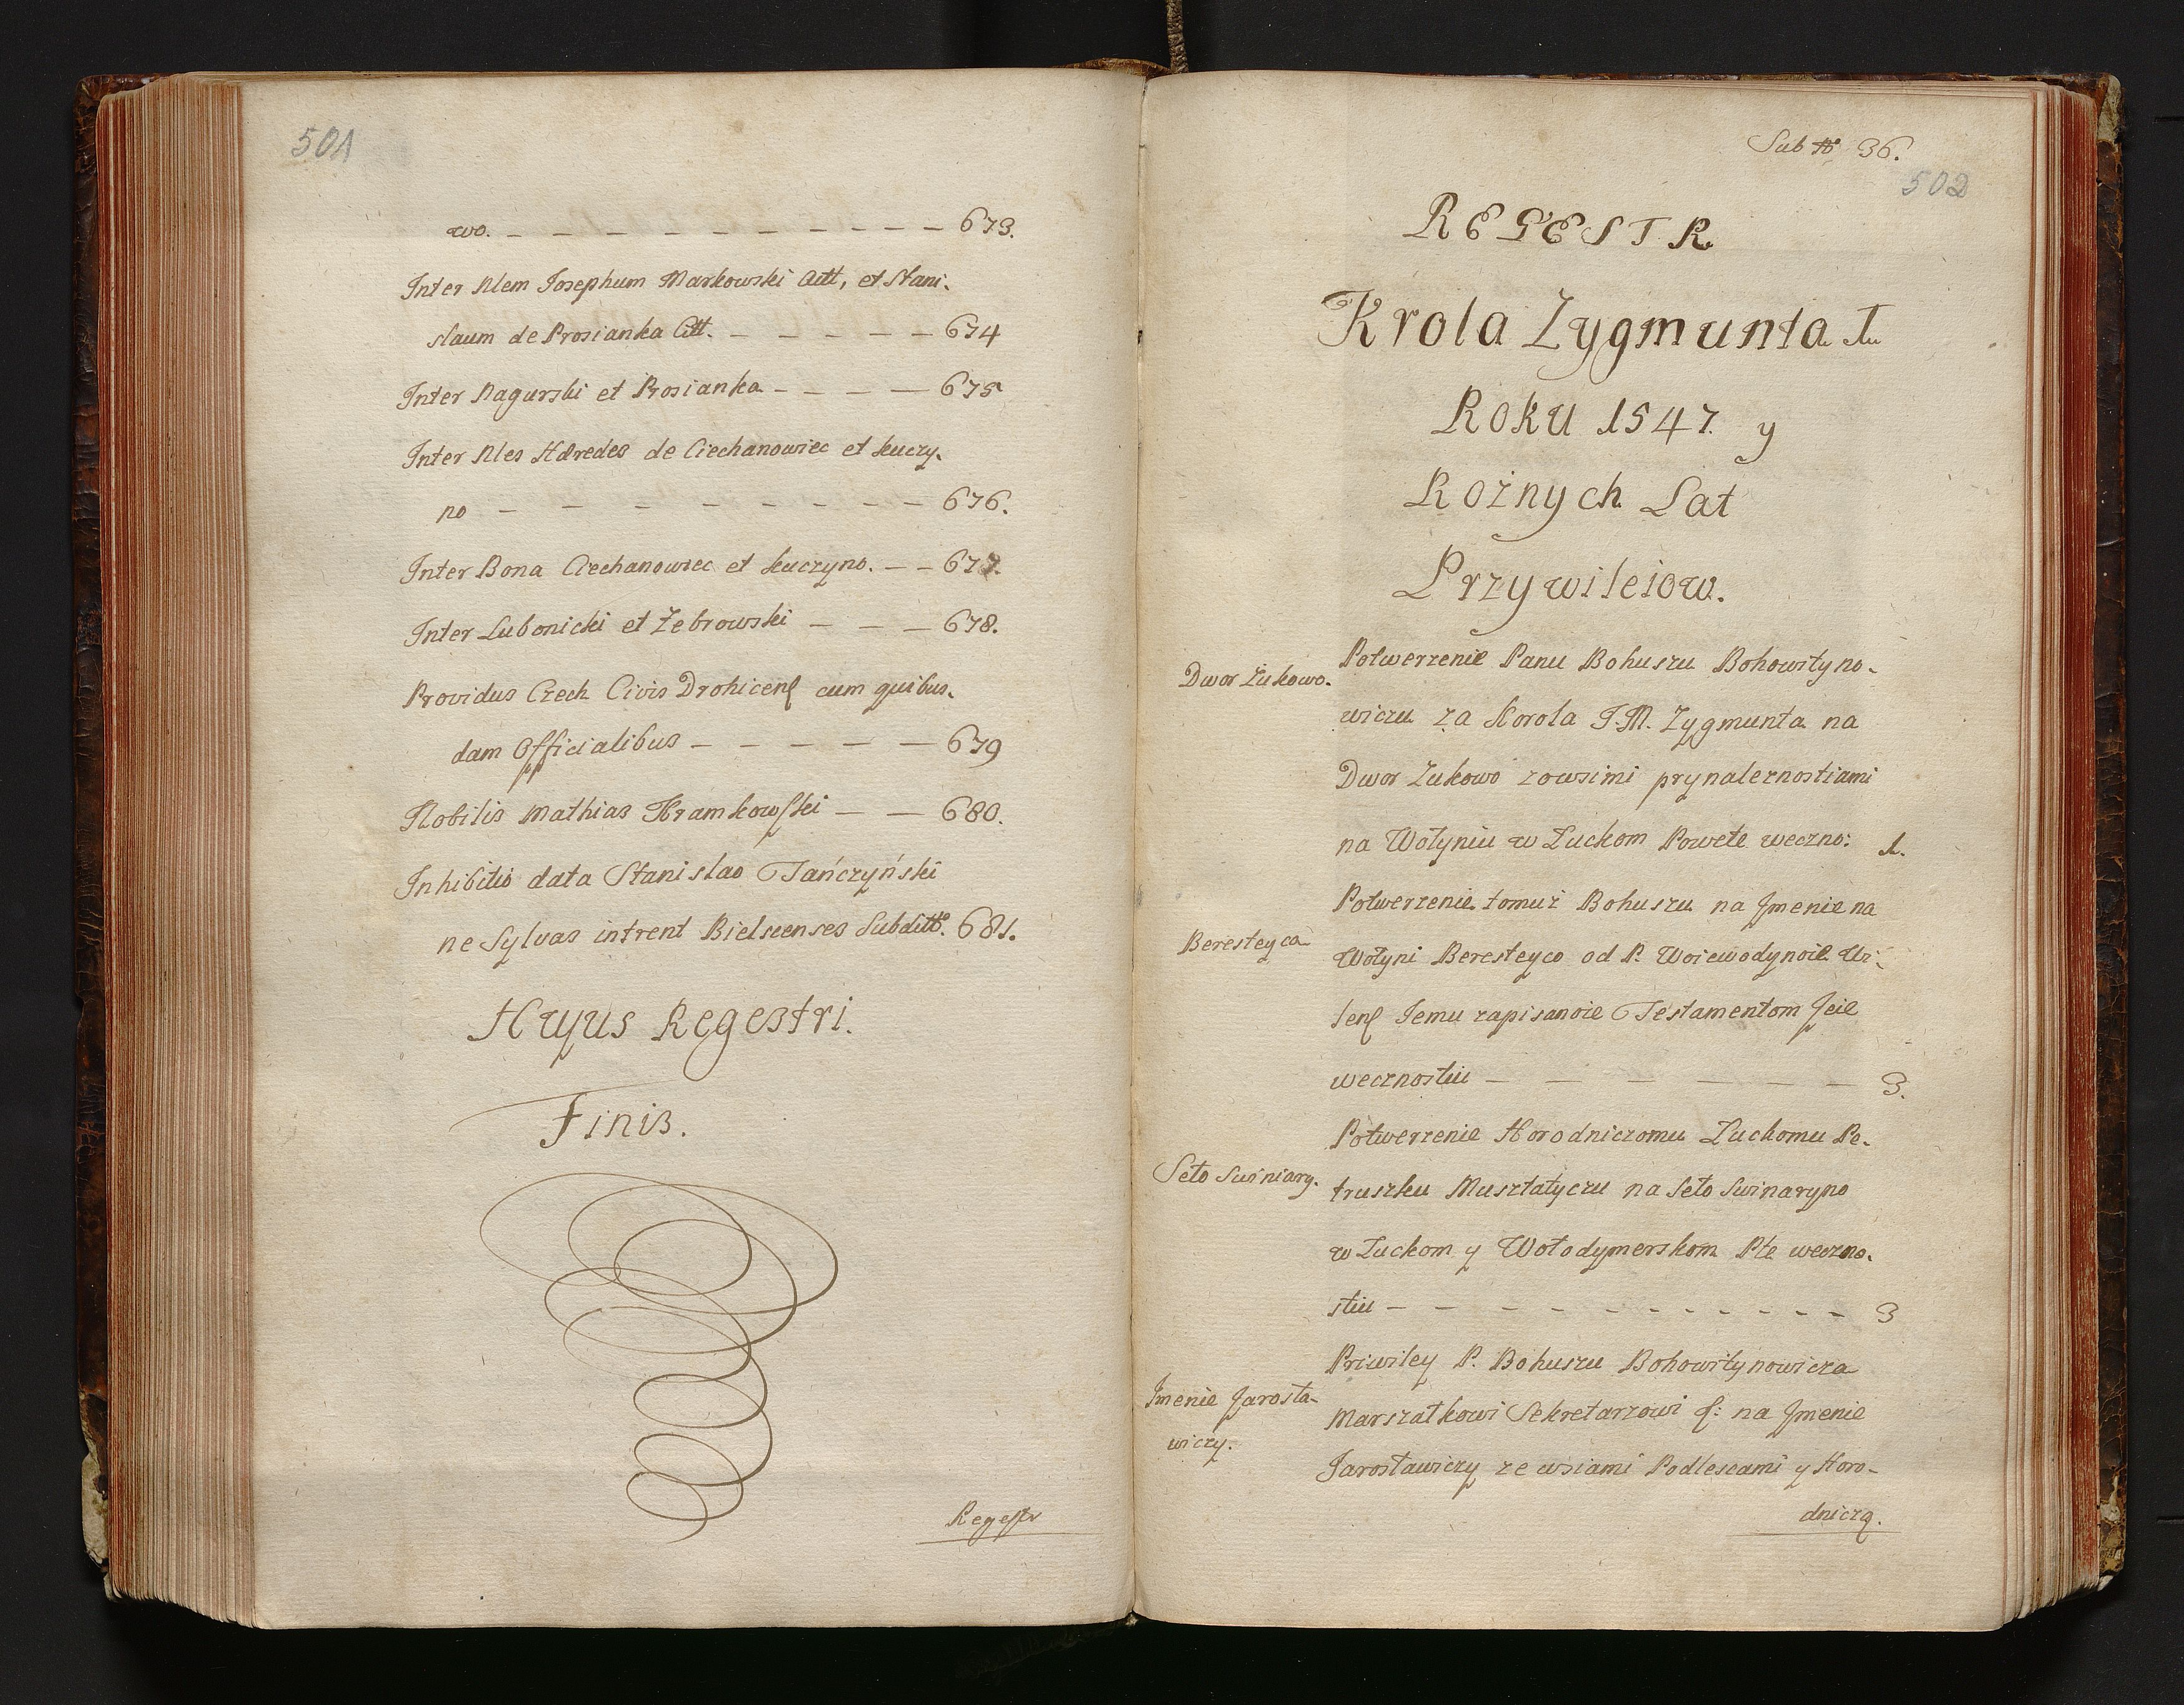 501
wo. – – – – – – – – – – – 673.
Inter Nlem Josephum Markowski Act, et Stani-
slaum de Prosianka Citt. – – – – – 674
Inter Nagurski et Prosianka – – – – 675
Inter Nles Hæredes de Ciechanowiec et kuczy-
no – – – – – – – – – 676.
Inter Bona Ciechanowiec et kuczyno. – – 677.
Inter Lubonicki et Żebrowski – – – 678.
Providus Czech Civis Drohicens cum quibus-
dam Officialibus – – – – – 679
Nobilis Mathias Kramkowski – – 680.
Inhibitio data Stanislao Tańczyński
ne Sylvas intrent Bielscenses Subditto. 681.
Hujus Regestri.
Finis.
Regestr
Sub No 36.
502
REGESTR
Krola Zygmunta I.
Roku 1547. y
Rożnych Lat
Przywileiow.
Dwor Żukowo.
Potwerzenie Panu Bohuszu Bohowityno-
wiczu za Korola J.M. Zygmunta na
Dwor Żukowo zowsimi prynaleznostiami
na Wołyniu w Łuckom Powete weczno: 1.
Beresteyca
Potwerzenie tomuż Bohuszu na Jmenie na
Wołyni Beresteyco od P. Woiewodynoie Wi-
lens Jemu zapisanoie Testamentom Jeie
wecznostiu – – – – – – 3.
Seło Swiniary.
Potwerzenie Horodniczomu Łuckomu Pe-
truszku Musztatyczu na Seło Swinaryno
w Łuckom y Wołodymerskom Pte weczno-
stiu – – – – – – – – – – – 3
Jmenie Jarosła-
wiczy.
Priwiley P. Bohuszu Bohowitynowicza
Marszałkowi Sekretarzowi &: na Jmenie
Jarosławiczy ze wsiami Podlescami y Horo-
dniczą.